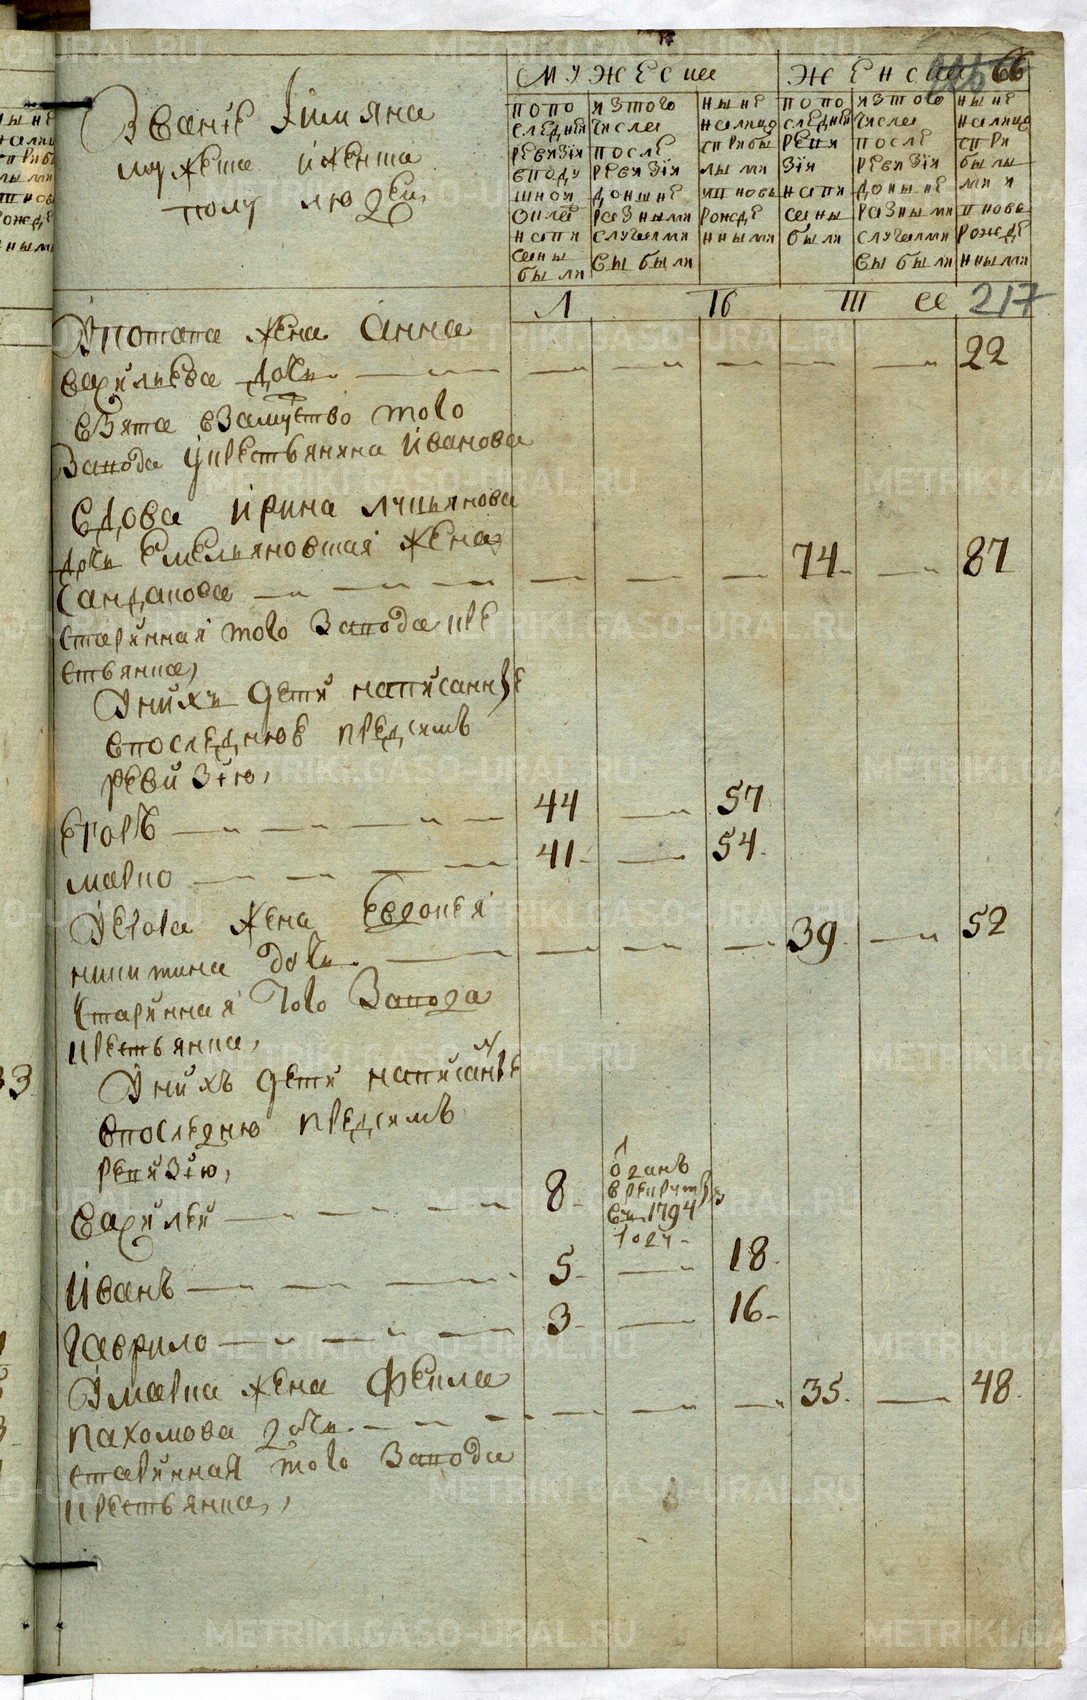 Званїе Їимяна
мужеска иженска
полу людеи
мужеска
женска
66
попо
следнеи
ревизїи
вподу
шнои
окла
напи
саны
были
изтого
числа
после
ревизїи
доныне
разными
случаями
выбыли
ныне
налицо
сприбы
лыми
иновь
рожде
нными
попо
следнеи
реви
зїи
напи
саны
были
изтого
числа
после
ревизїи
доныне
разными
случаями
выбыли
ныне
налицо
спри
былы
ми и
внове
рожде
нными
217
Употапа жена Анна
васильева дочь 22
взята взамуство того
Завода укрестьянина Иванова
вдова ирина лукьянова
дочь Емельяновская жена
Санданова 74 87
старинная того Завода кре
стьянка,
Уних дети написанные
впоследнюе предсимъ
ревизїю,
Егоръ 44 57
марко 41 54
Уегора жена Евдокея
никитина дочь 39 52
Старинная Того Завода
крестьянка,
Унихъ дети написанные
впоследню предсимъ
ревизїю,
отданъ
врекруты
въ 1794
году
василеи 8
Иванъ 5 18
Гаврило 3 16
Умарка жена Фекла
пахомова дочь 35 48
старинная того Завода
крестьянка,
METRIKI.GASO-URAL.RU